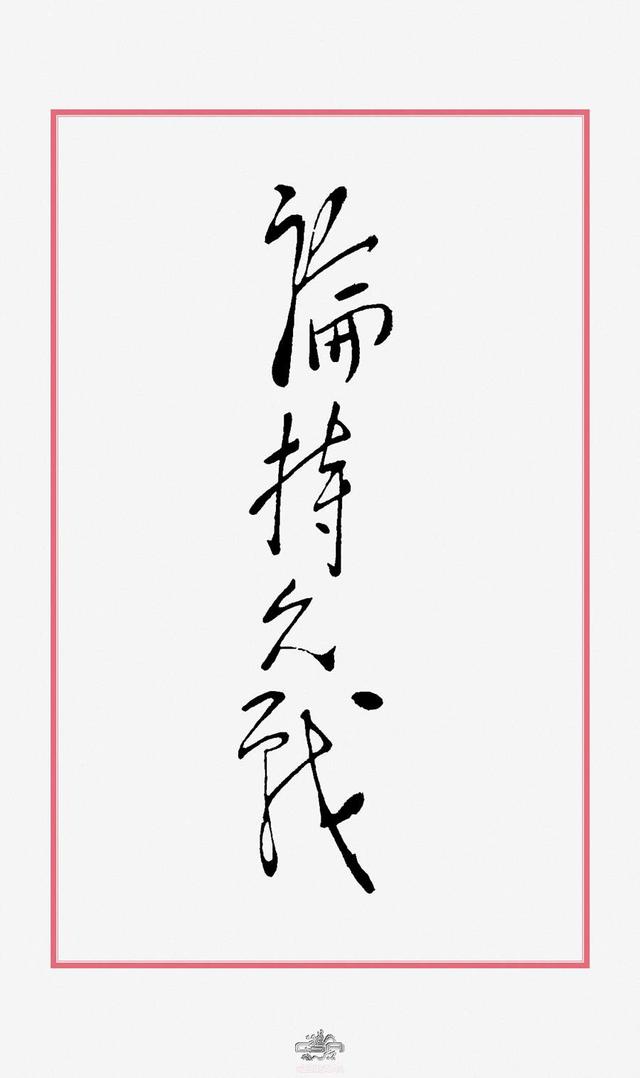 論持久戰